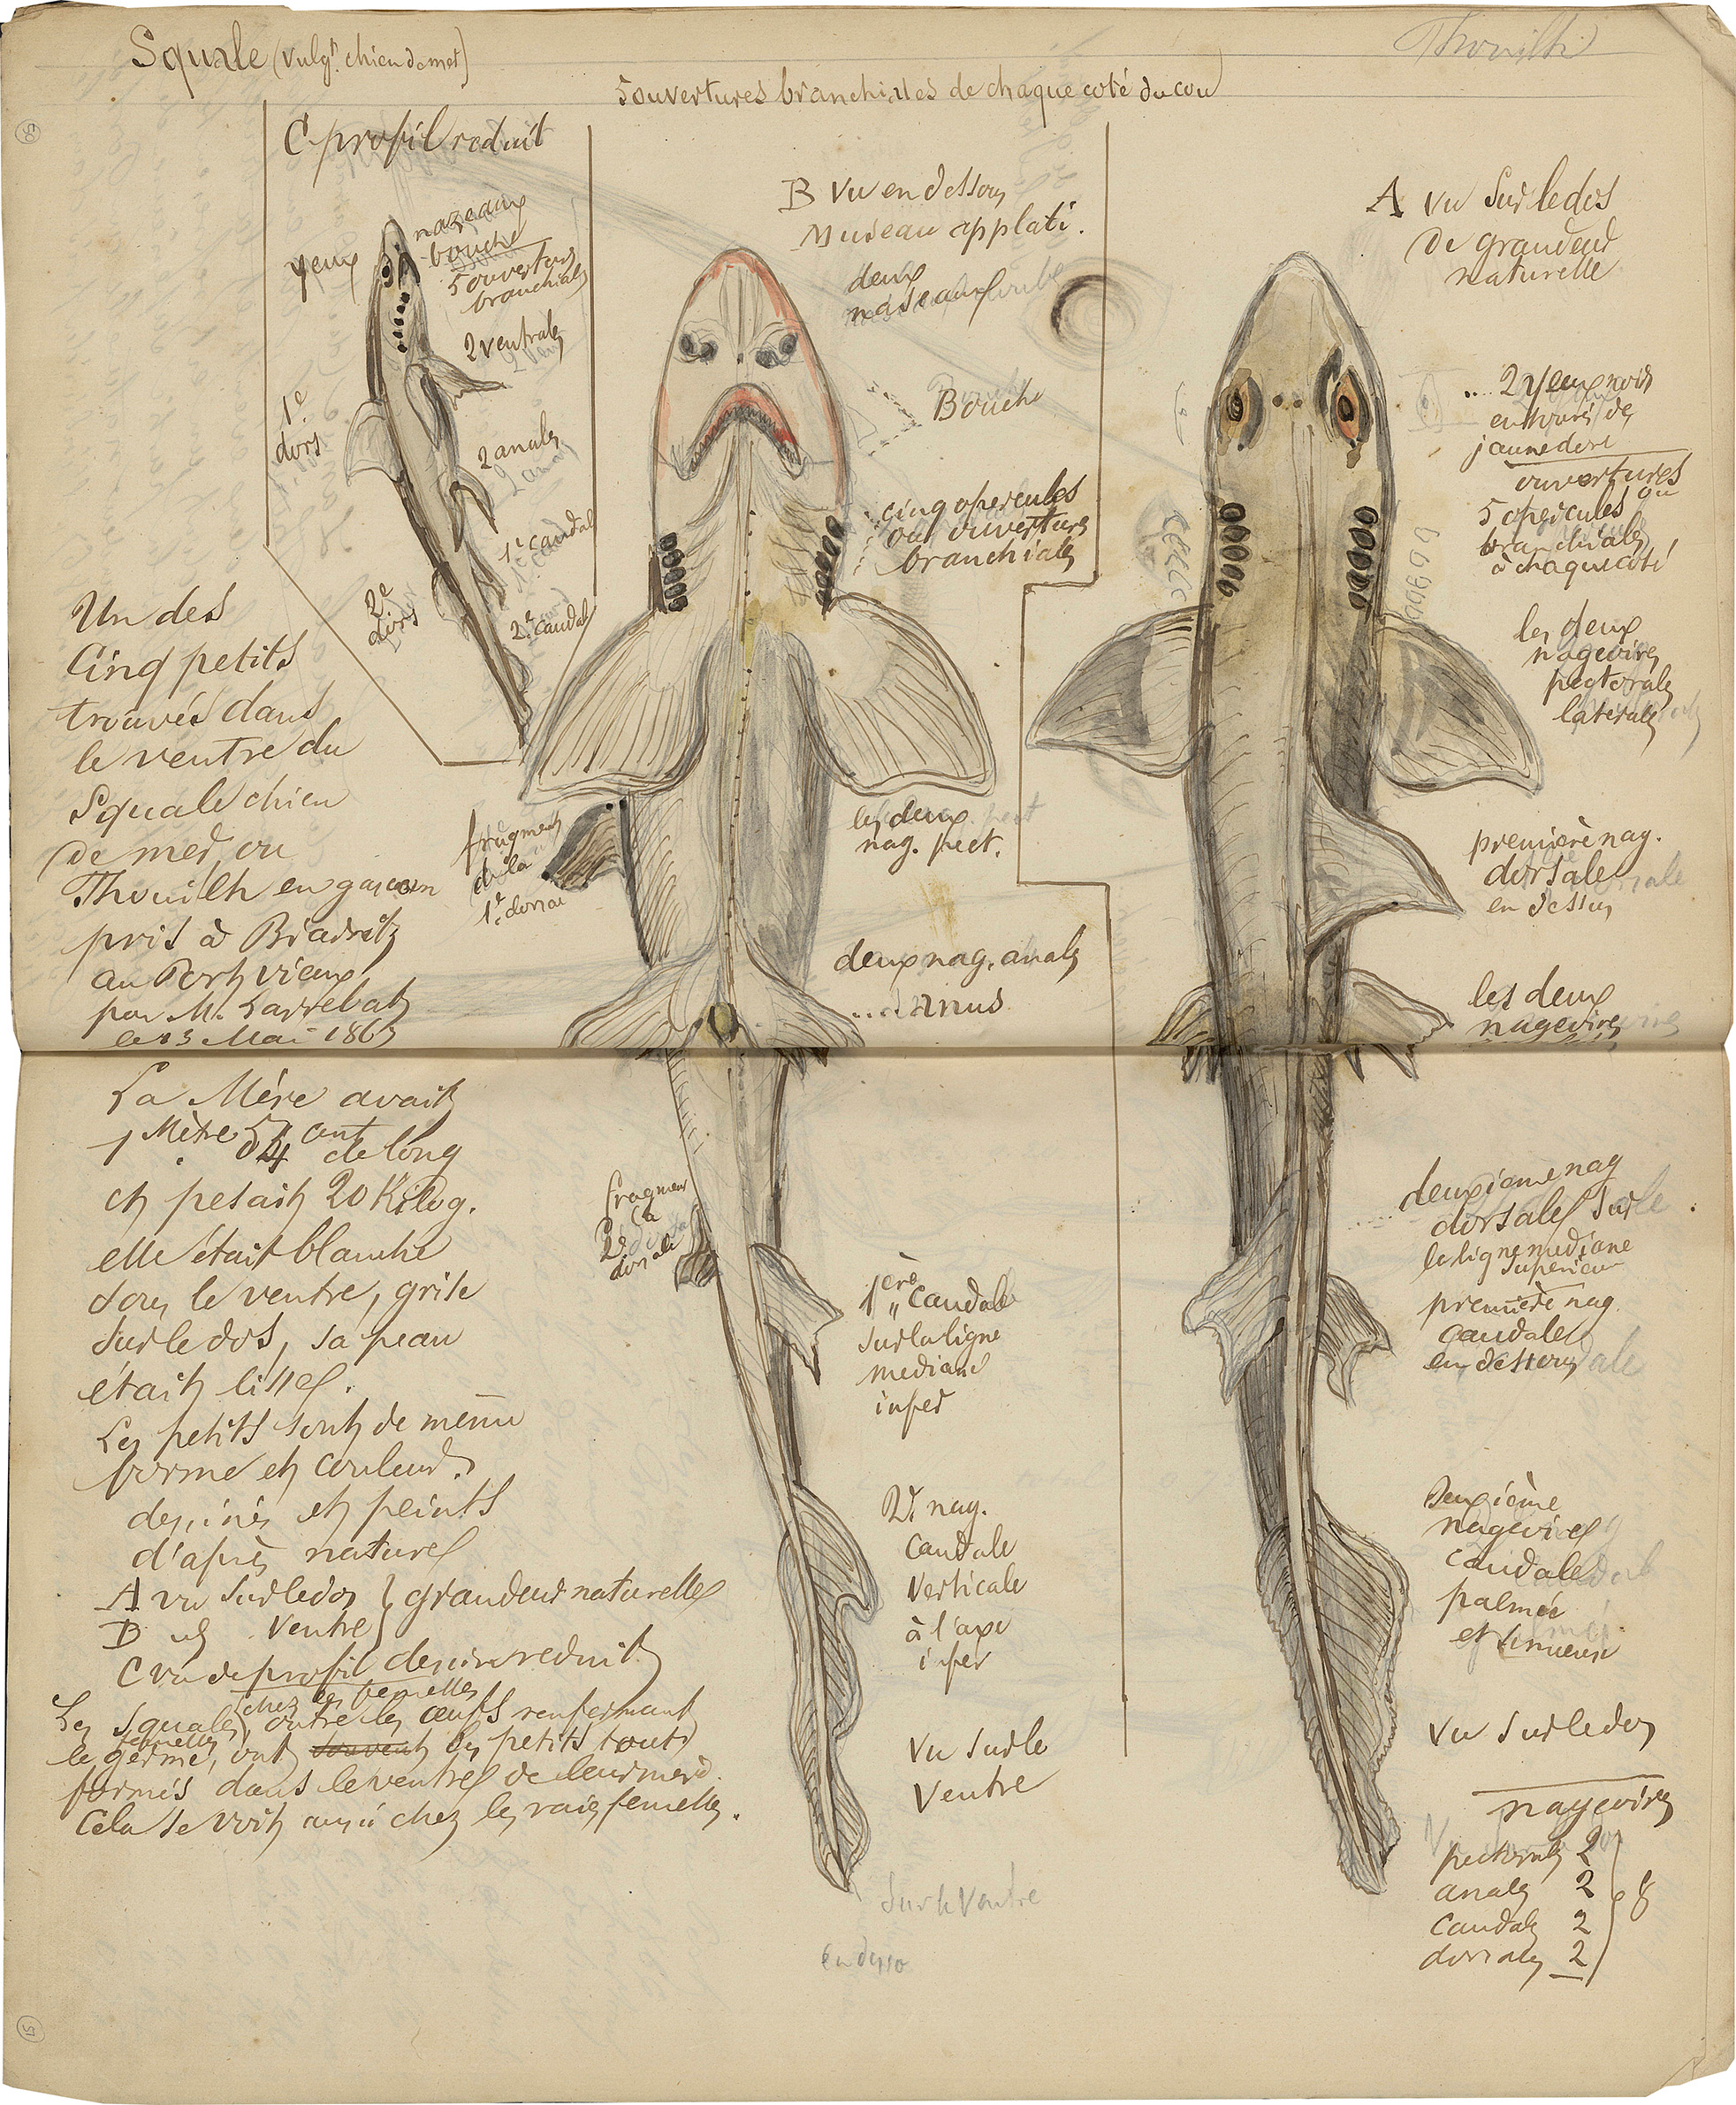 Squale (vulgt. chien de mer)
Thouilh
5 ouvertures branchiales de chaque coté du cou
C profil reduit
nazeaux
bouche
yeux
5 ouvertures
branchiales
2 ventrales
1e
dors
2 anales
1e caudal
2e
dors
2e caudal
B vu en dessous
Museau applati.
deux
naseaux
Bouche
cinq opercules
ou ouvertures
branchiales
les deux
nag. pect.
fragment
de la
1e dorsal
deux nag. anales
... anus
fragment
la
2e
dorsale
1ère caudale
sur la ligne
mediane
infer
2e. nag.
caudale
verticale
à l'axe
infer
Vu sur le
Ventre
Sur le Ventre
A vu sur le dos
de grandeur
naturelle
... 2 yeux noirs
entourés de
jaune doré
ouvertures
ou
5 opercules
branchiales
à chaque coté
les deux
nageoires
pectorales
laterales
première nag.
dorsale
en dessus
les deux
nageoires
deuxieme nag
dorsale sur
la ligne mediane
superieur
première nag.
caudale
en dessous
Deuxième
nageoire
caudale
palmée
et sinueuse
Vu sur le dos
nageoires
pectorales 2
anales 2
caudales 2
dorsales 2
8
Un des
Cinq petits
trouvés dans
le ventre du
Squale chien
de mer, ou
Thouilh en gascon
pris à Biarritz
au Port vieux,
par M. Larrebat
le 23 Mai 1863
La Mère avait
1 Mètre 54 cent de long
et pesait 20 Kilog.
elle était blanche
sous le ventre, grise
sur le dos, sa peau
était lisse.
Les petits sont de même
forme et couleur.
dessinés et peints
d'après nature
A vu sur le dos } grandeur naturelle
B id ventre
C vu de profil dessin reduit
chez les femelles
Les Squales, outre les œufs renfermant
femelles
le germe, ont souvent les petits tout
formés dans le ventre de leur mere.
Cela se voit aussi chez les raies femelles.